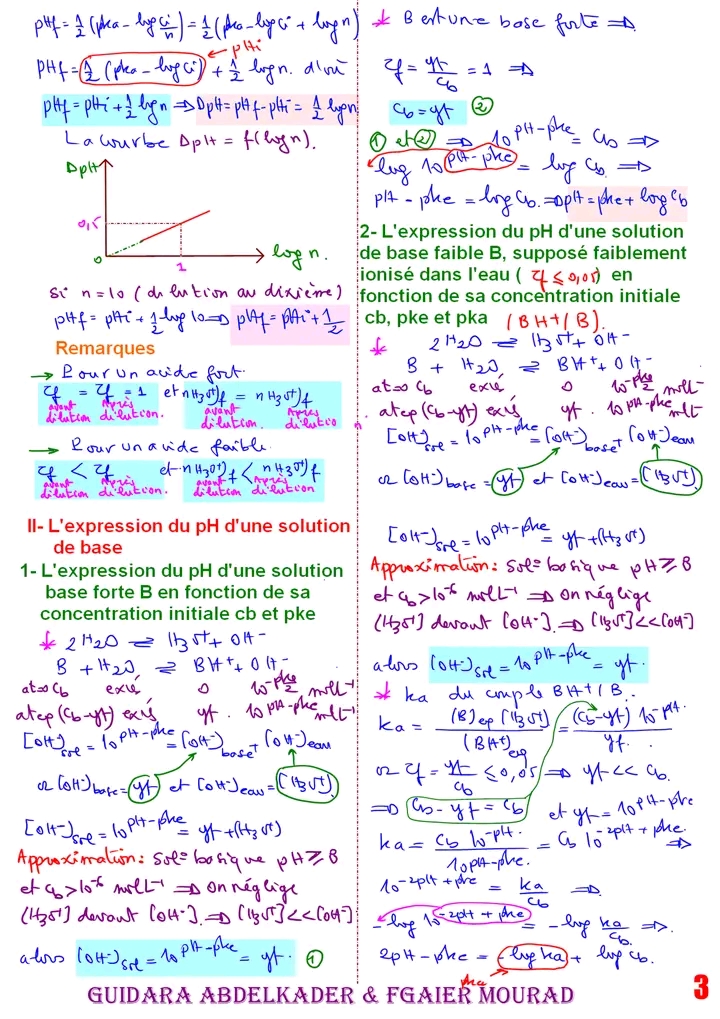 pHf = 1/2 (pka - log ci/n) = 1/2 (pka - log ci + log n)
pHi
pHf = 1/2 (pka - log ci) + 1/2 log n. d'où
pHf = pHi + 1/2 log n ⇒ ΔpH = pHf - pHi = 1/2 log n
La courbe ΔpH = f(log n).
ΔpH
0,5
0
1
log n.
si n = 10 (dilution au dixième)
pHf = pHi + 1/2 log 10 ⇒ pHf = pHi + 1/2
Remarques
→ Pour un acide fort
τf = τf = 1 et nH3O+)f = nH3O+)f
avant dilution. après dilution. avant dilution. après dilution
→ Pour un acide faible.
τf < τf et nH3O+)f < nH3O+)f
avant dilution après dilution. avant dilution après dilution
II- L'expression du pH d'une solution
de base
1- L'expression du pH d'une solution
base forte B en fonction de sa
concentration initiale cb et pke
* 2H2O ⇌ H3O+ + OH-
B + H2O ⇌ BH+ + OH-
at=0 Cb excés 0 10^-pke/2 mol L-1
atep (Cb-yf) excés yf. 10^pH-pke mol L-1
[OH-]sol = 10^pH-pke = [OH-]base + [OH-]eau
or [OH-]base = yf et [OH-]eau = [H3O+].
[OH-]sol = 10^pH-pke = yf + [H3O+]
Approximation: sol° basique pH ≥ 8
et cb > 10^-6 mol L-1 ⇒ on néglige
[H3O+] devant [OH-]. ⇒ [H3O+] << [OH-]
alors [OH-]sol = 10^pH-pke = yf. ①
* B est une base forte ⇒
τf = yf/cb = 1 ⇒
cb = yf ②
① et ② ⇒ 10^pH-pke = Cb ⇒
log 10^pH-pke = log Cb. ⇒
pH - pke = log Cb. ⇒ pH = pke + log Cb
2- L'expression du pH d'une solution
de base faible B, supposé faiblement
ionisé dans l'eau ( τf ≤ 0,05) en
fonction de sa concentration initiale
cb, pke et pka (BH+/B).
* 2H2O ⇌ H3O+ + OH-
B + H2O ⇌ BH+ + OH-
at=0 Cb excés 0 10^-pke/2 mol L-1
atep (Cb-yf) excés yf. 10^pH-pke mol L-1
[OH-]sol = 10^pH-pke = [OH-]base + [OH-]eau
or [OH-]base = yf et [OH-]eau = [H3O+].
[OH-]sol = 10^pH-pke = yf + [H3O+]
Approximation: sol° basique pH ≥ 8
et cb > 10^-6 mol L-1 ⇒ on néglige
[H3O+] devant [OH-]. ⇒ [H3O+] << [OH-]
alors [OH-]sol = 10^pH-pke = yf.
* ka du couple BH+/B:
ka = [B]ep [H3O+] / [BH+]eq = (Cb-yf) 10^-pH / yf.
or τf = yf/cb ≤ 0,05 ⇒ yf << cb.
⇒ Cb - yf = Cb et yf = 10^pH-pke
ka = Cb 10^-pH / 10^pH-pke. = Cb 10^-2pH + pke. ⇒
10^-2pH + pke = ka/Cb ⇒
-log 10^-2pH + pke = -log ka/Cb ⇒.
2pH - pke = -log ka + log Cb.
pka
GUIDARA ABDELKADER & FGAIER MOURAD
3